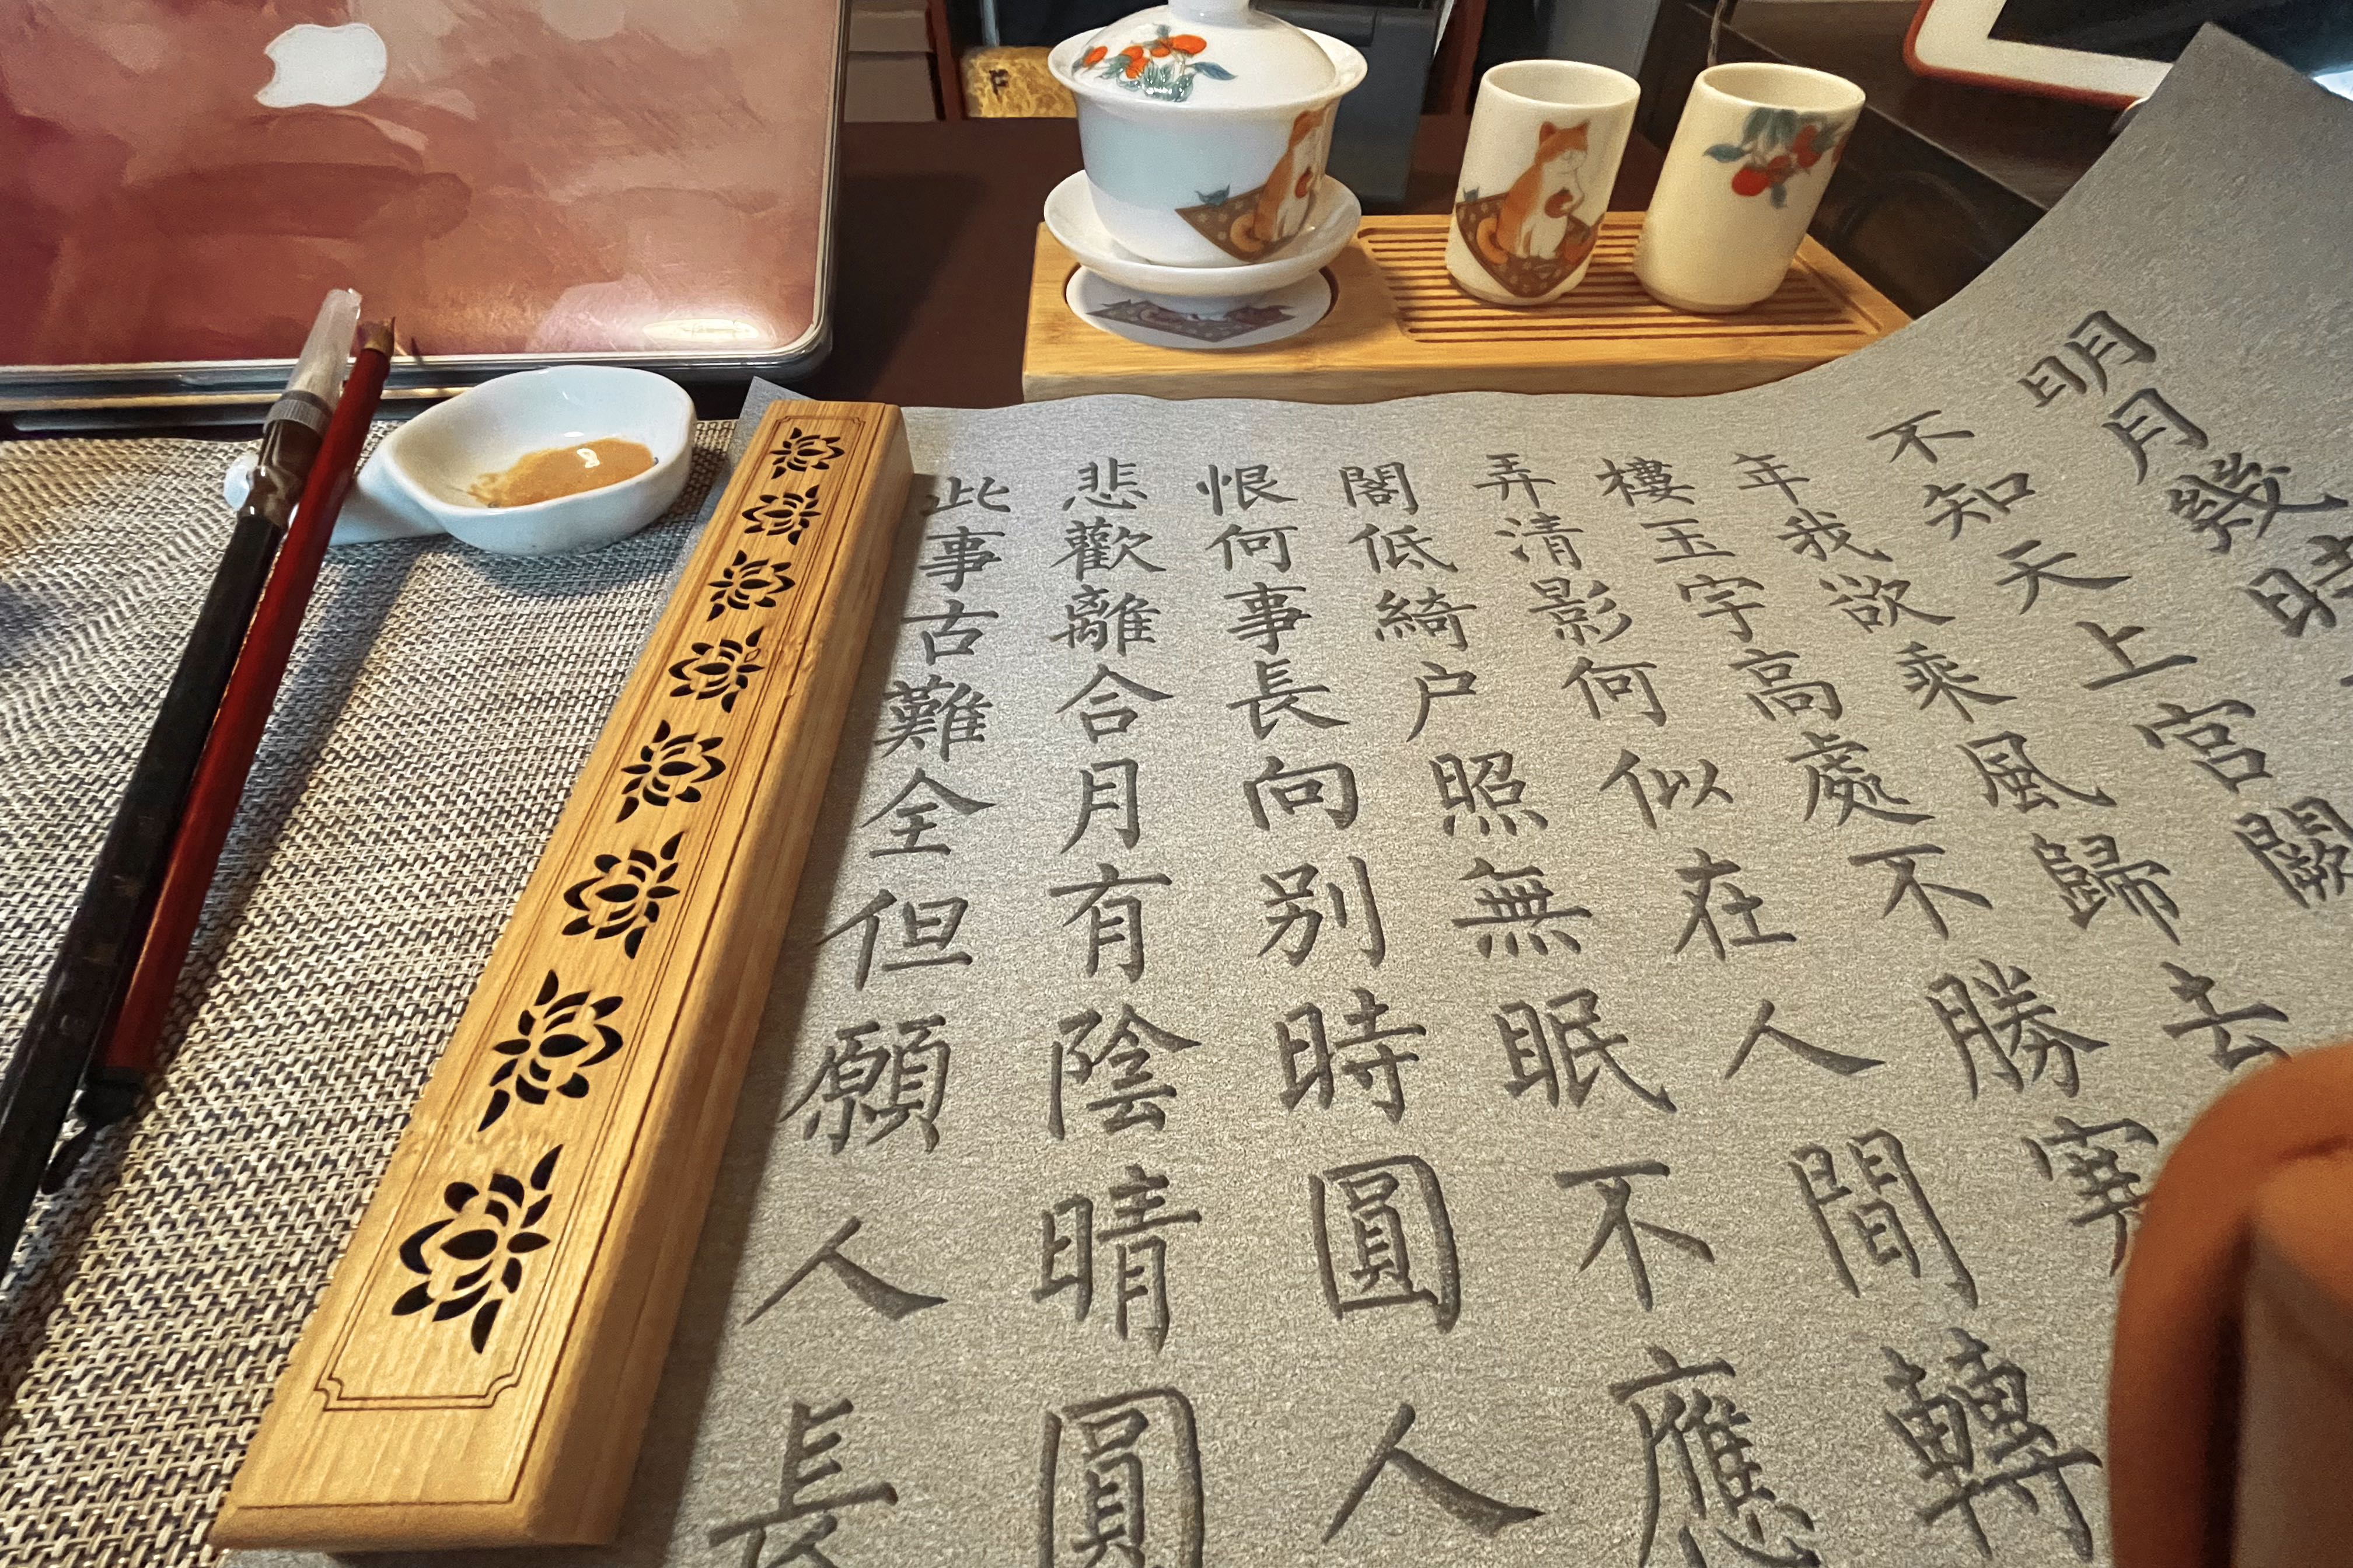 明月幾時
不知天上宮闕
年我欲乘風歸去
樓玉宇高處不勝寒
弄清影何似在人間轉
閣低綺户照無眠不應
恨何事長向别時圓人
悲歡離合月有陰晴圓
此事古難全但願人長